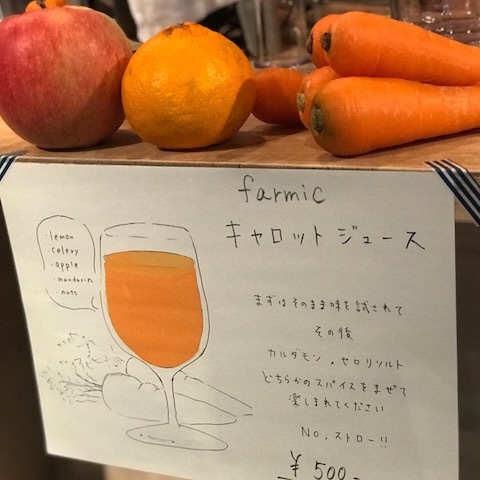 farmic
キャロット ジュース
・lemon
・celery
・apple
・mandarin
・nuts
まずはそのまま味を試されて
その後
カルダモン , セロリソルト
どちらかのスパイスをまぜて
楽しまれてください
No, ストロー!!
¥500-